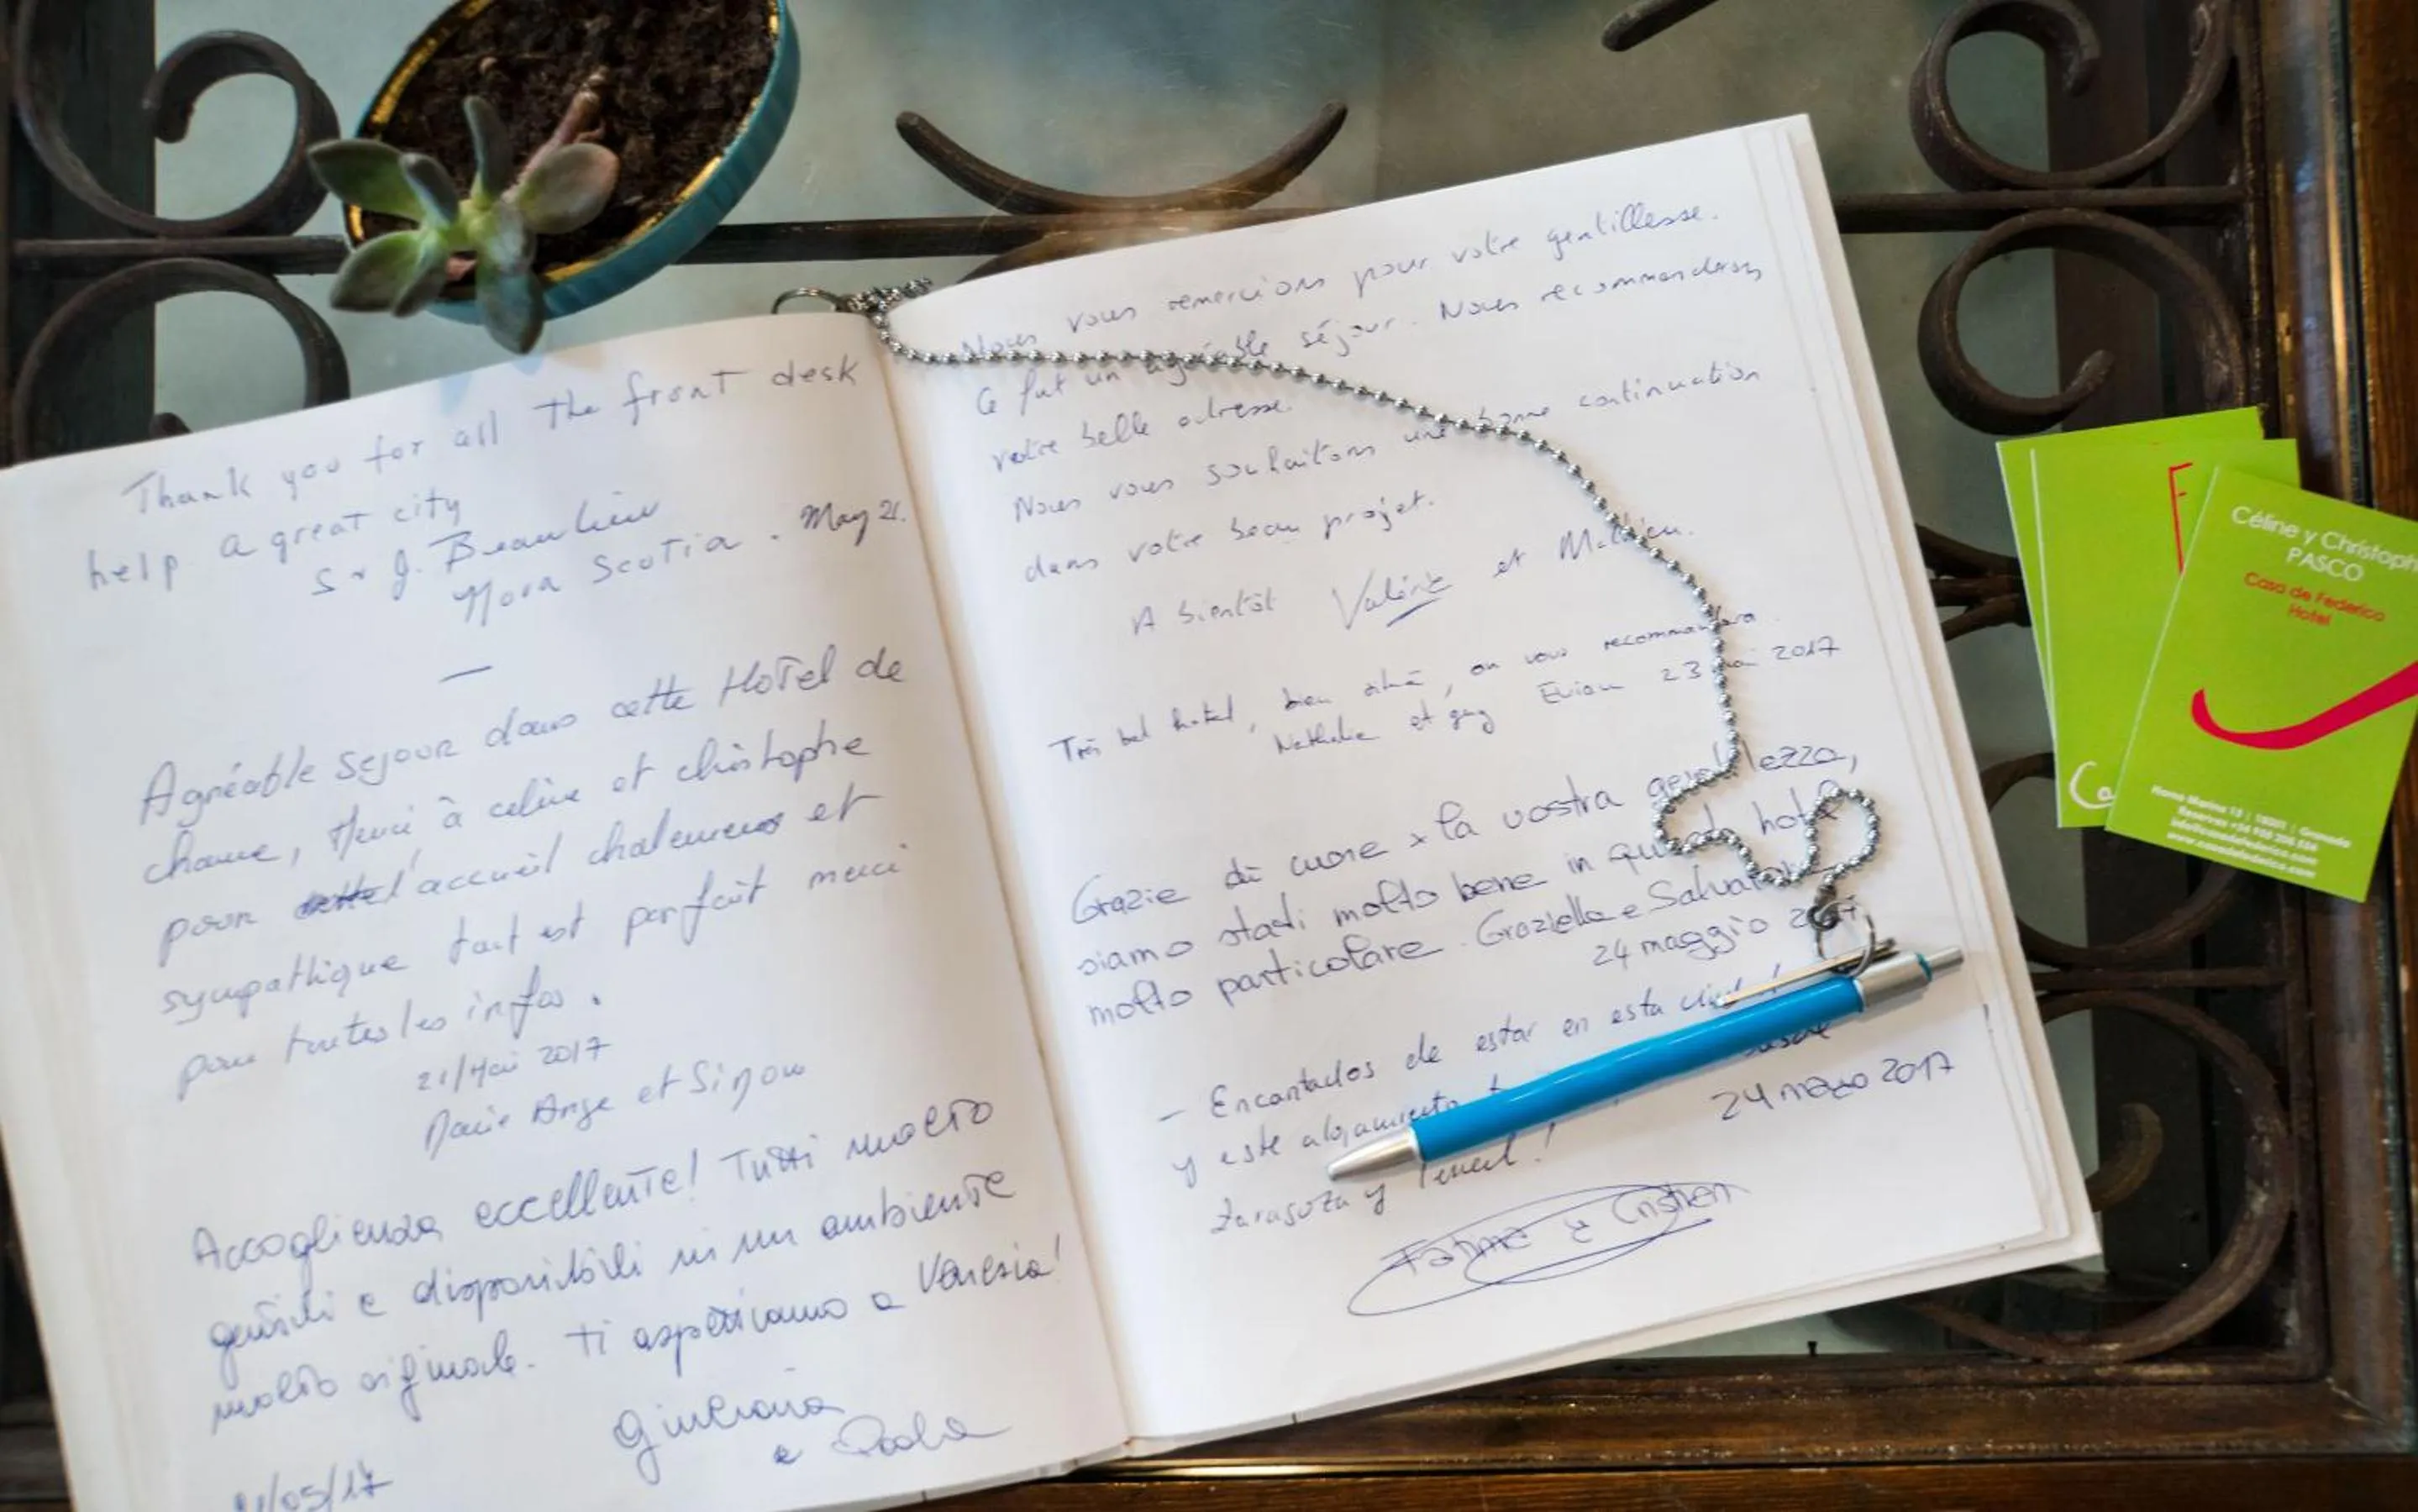 Thank you for all the front desk
help. a great city
Sr J. Beaulieu
Nova Scotia. May 21.
—
Agréable sejour dans cette Hotel de
charme, Merci à céline et christophe
pour l'accueil chaleureux et
sympathique tout est parfait merci
pour toutes les infos.
21/Mai 2017
Marie Ange et Simon
Accoglienza eccellente! Tutti molto
gentili e disponibili in un ambiente
molto originale. Ti aspettiamo a Venezia!
Giuliana
e Paola
/05/17
Nous vous remercions pour votre gentillesse.
Ce fut un agréable séjour. Nous recommanderons
votre belle adresse.
Nous vous souhaitons une bonne continuation
dans votre beau projet.
A bientôt Valérie et Mathieu.
Très bel hotel, bien situé, on vous recommandera.
Nathalie et guy Evian 23 mai 2017
Grazie di cuore x la vostra gentilezza,
siamo stati molto bene in questo hotel
molto particolare. Graziella e Salvatore
24 maggio 2017
— Encantados de estar en esta ciudad!
y este alojamiento desde
Zaragoza y Teruel!
24 mayo 2017
Fatima y Cristian
Céline y Christoph
PASCO
Casa de Federico
Hotel
Horno Marina 13 | 18001 | Granada
Reservas +34 958 208 534
info@casadefederico.com
www.casadefederico.com
Ca